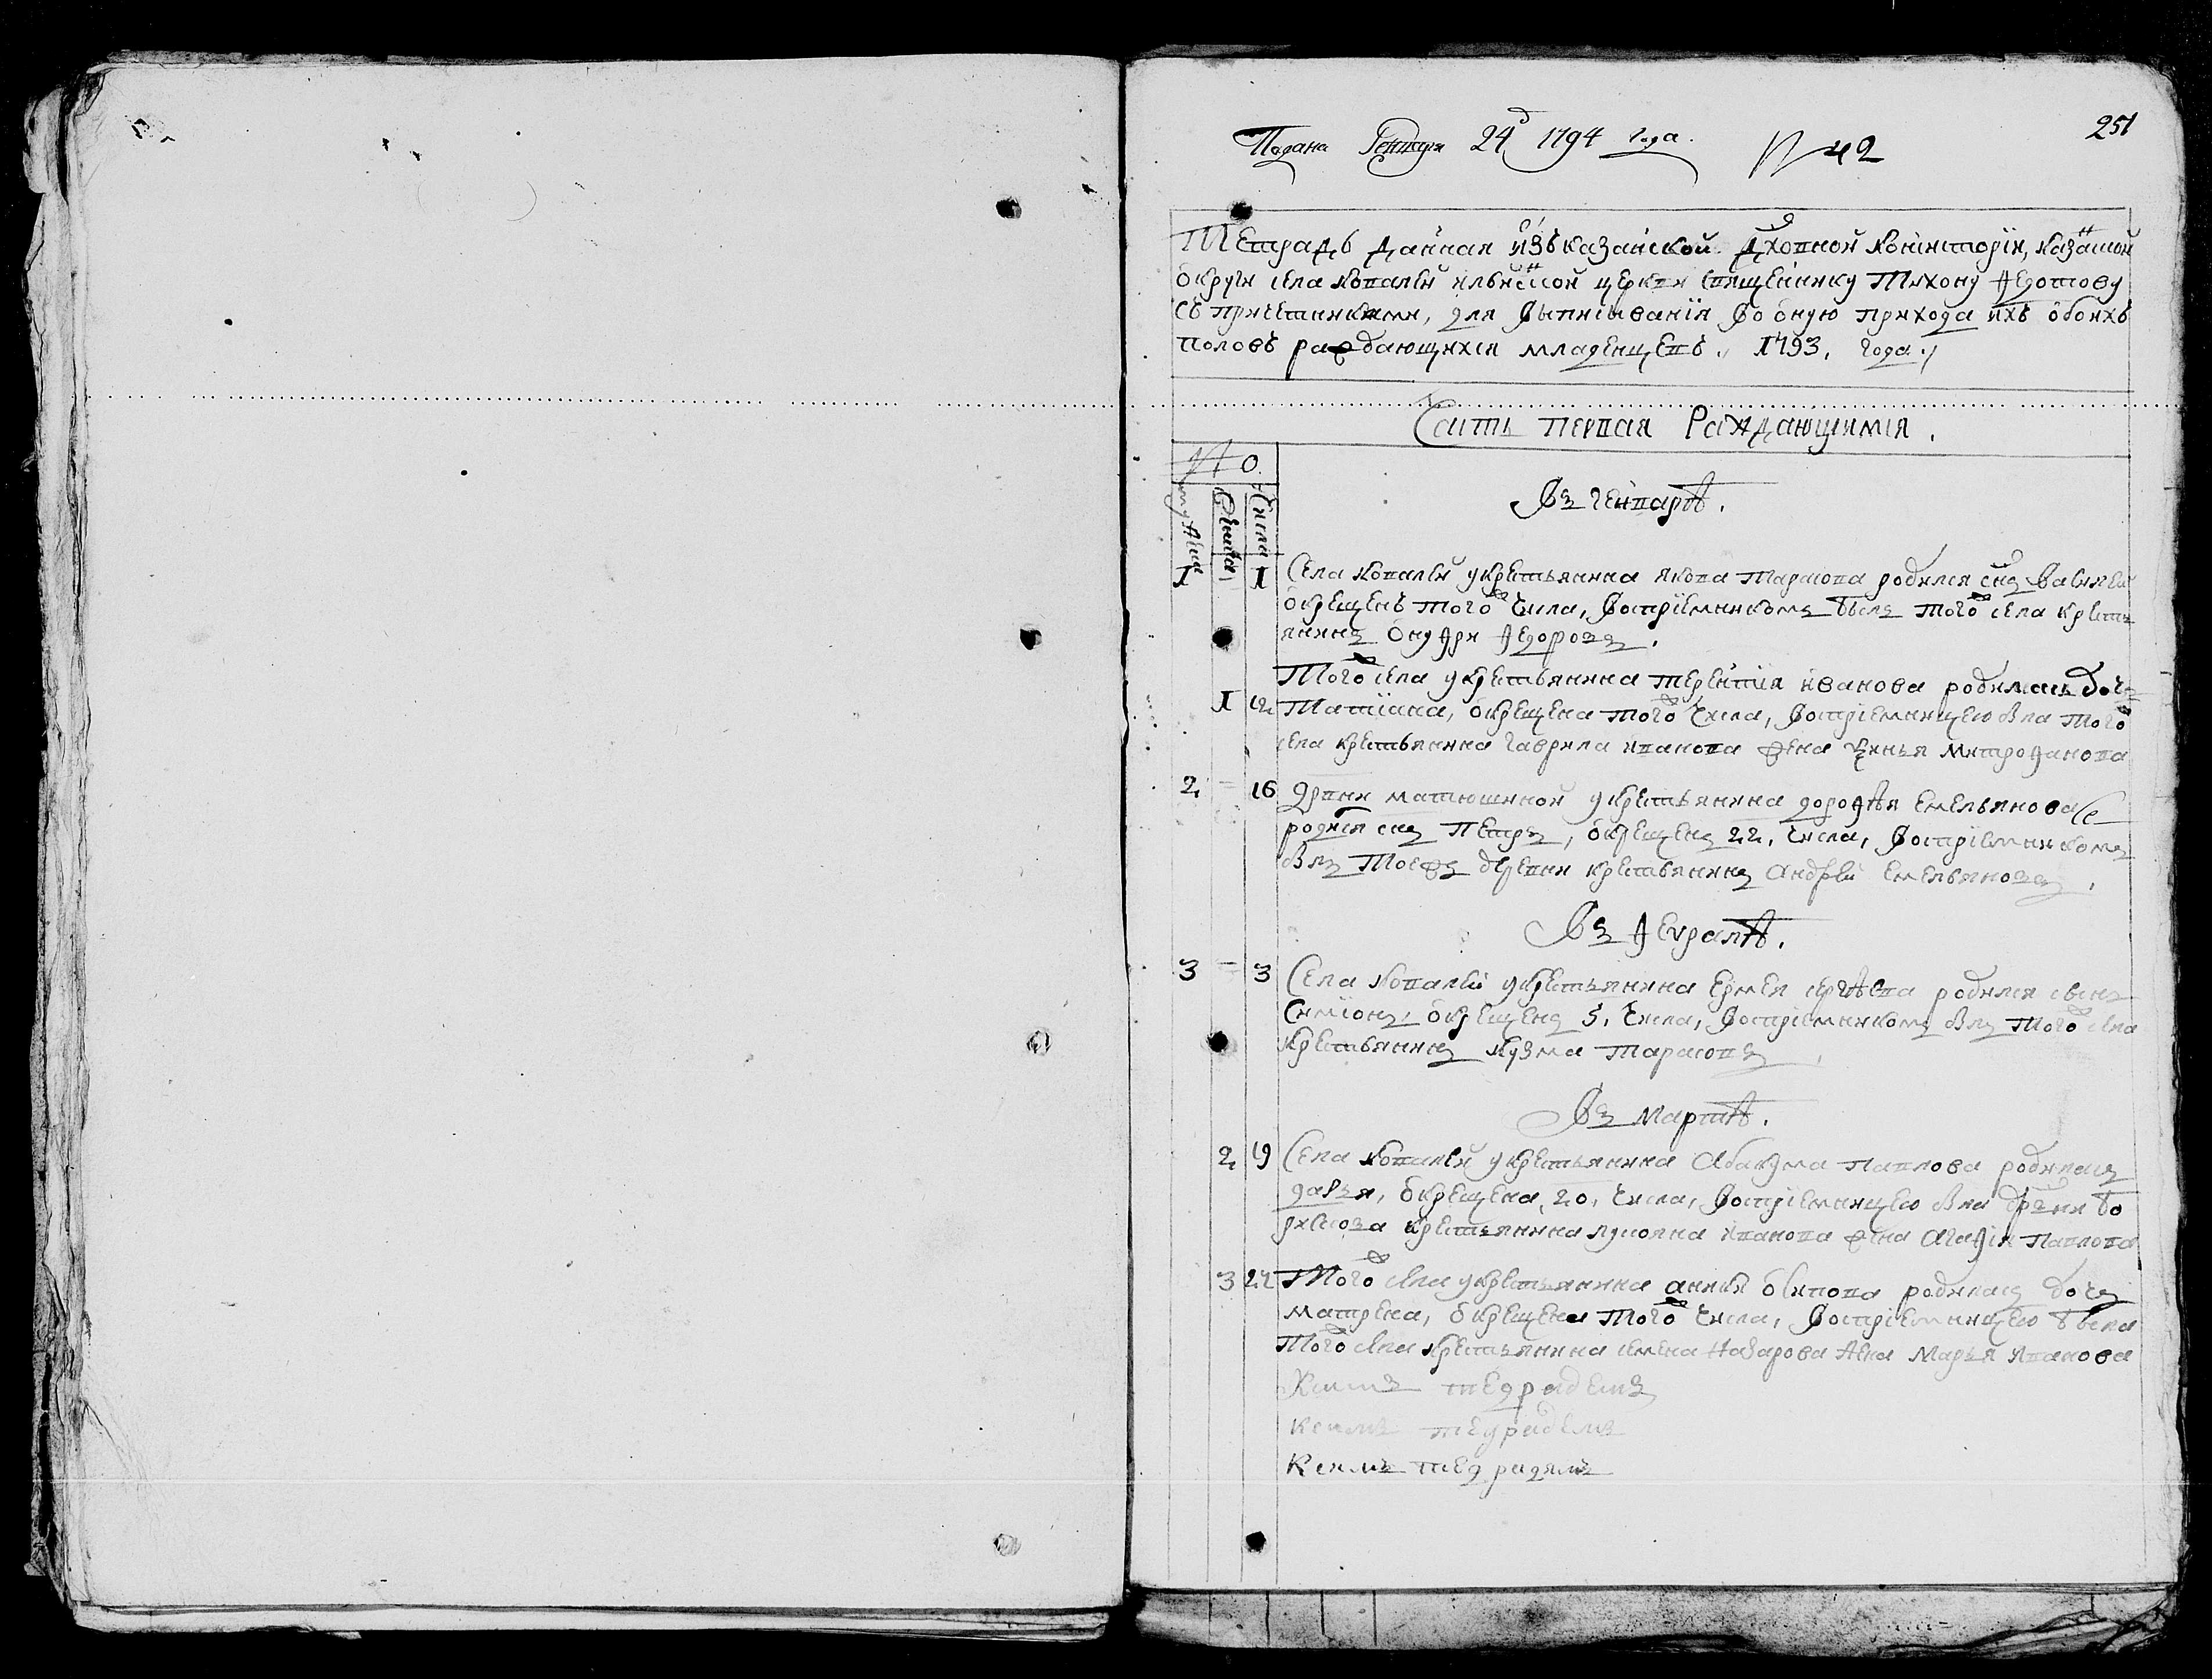 251
Подана Генваря 24д 1794 года.
N 42
Тетрадь данная изъ казанской дховной консисторїи, казанской
округи села ковалей ильинской церкви священнику Тихону Федотову
съ причетниками, для вписыванїя во оную прихода ихъ обоихъ
половъ раждающихся младенцевъ. 1793. года.
Часть первая Раждающимся.
No.
мужеска
женска
Числа
Въ генварѣ.
1 1 Села ковалей укрестьянина якова тарасова родился снъ Василей
окрещенъ того ж числа, восприемникомъ былъ того ж села кресть
янинъ Федоровъ.
Того ж села укрестьянина терентїя иванова родилась дочь
1 12 Татїана, окрещена того ж числа, восприемницею была того ж
села крестьянина гаврила иванова жена митрофанова
2 16 Дрвни матюшиной укрестьянина дорофѣя Емельянова
родися снъ Петръ, окрещенъ 22, числа, восприемникомъ
былъ Тоежъ деревни крестьянинъ андрей Емельяновъ.
Въ Февралѣ.
3 3 Села ковалей укрестьянина Ермея сергѣева родился сынъ
Симїонъ, окрещенъ 5, числа, восприемникомъ былъ того ж села
крестьянинъ кузма тарасовъ
Въ мартѣ.
2 19 Села ковалей укрестьянина абакума павлова родилась
дарья, окрещена, 20, числа, восприемницею была дрвни бо
крестьянина лукояна иванова жена агафїя павлова
3 22 Того ж села укрестьянина осипова родилась дочь
матрена, окрещена того ж числа, восприемницею была
того ж села крестьянина семена назарова жена марья иванова